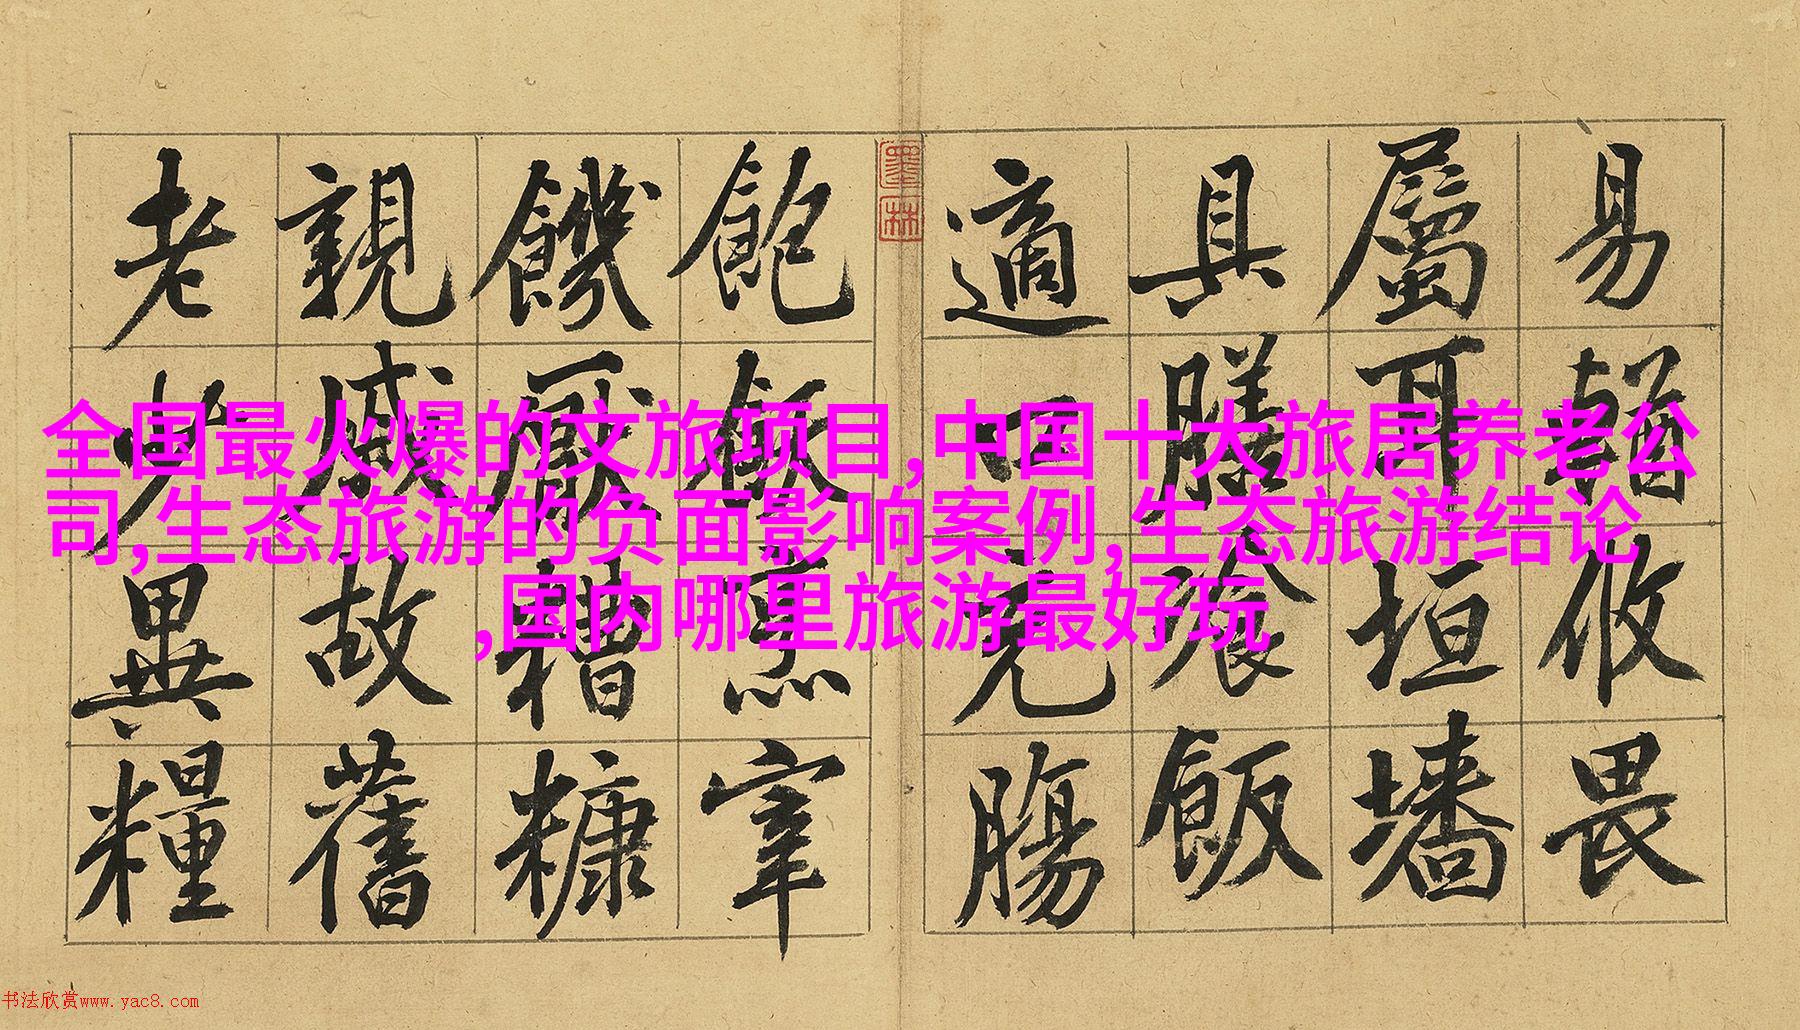 易輶攸畏
屬耳垣墻
具膳飡飯
適口充腸
墨林
飽飫烹宰
饑厭糟糠
親戚故舊
老少異糧
全国最火爆的文旅项目,中国十大旅居养老公
司,生态旅游的负面影响案例,生态旅游结论
,国内哪里旅游最好玩
书法欣赏www.yac8.com